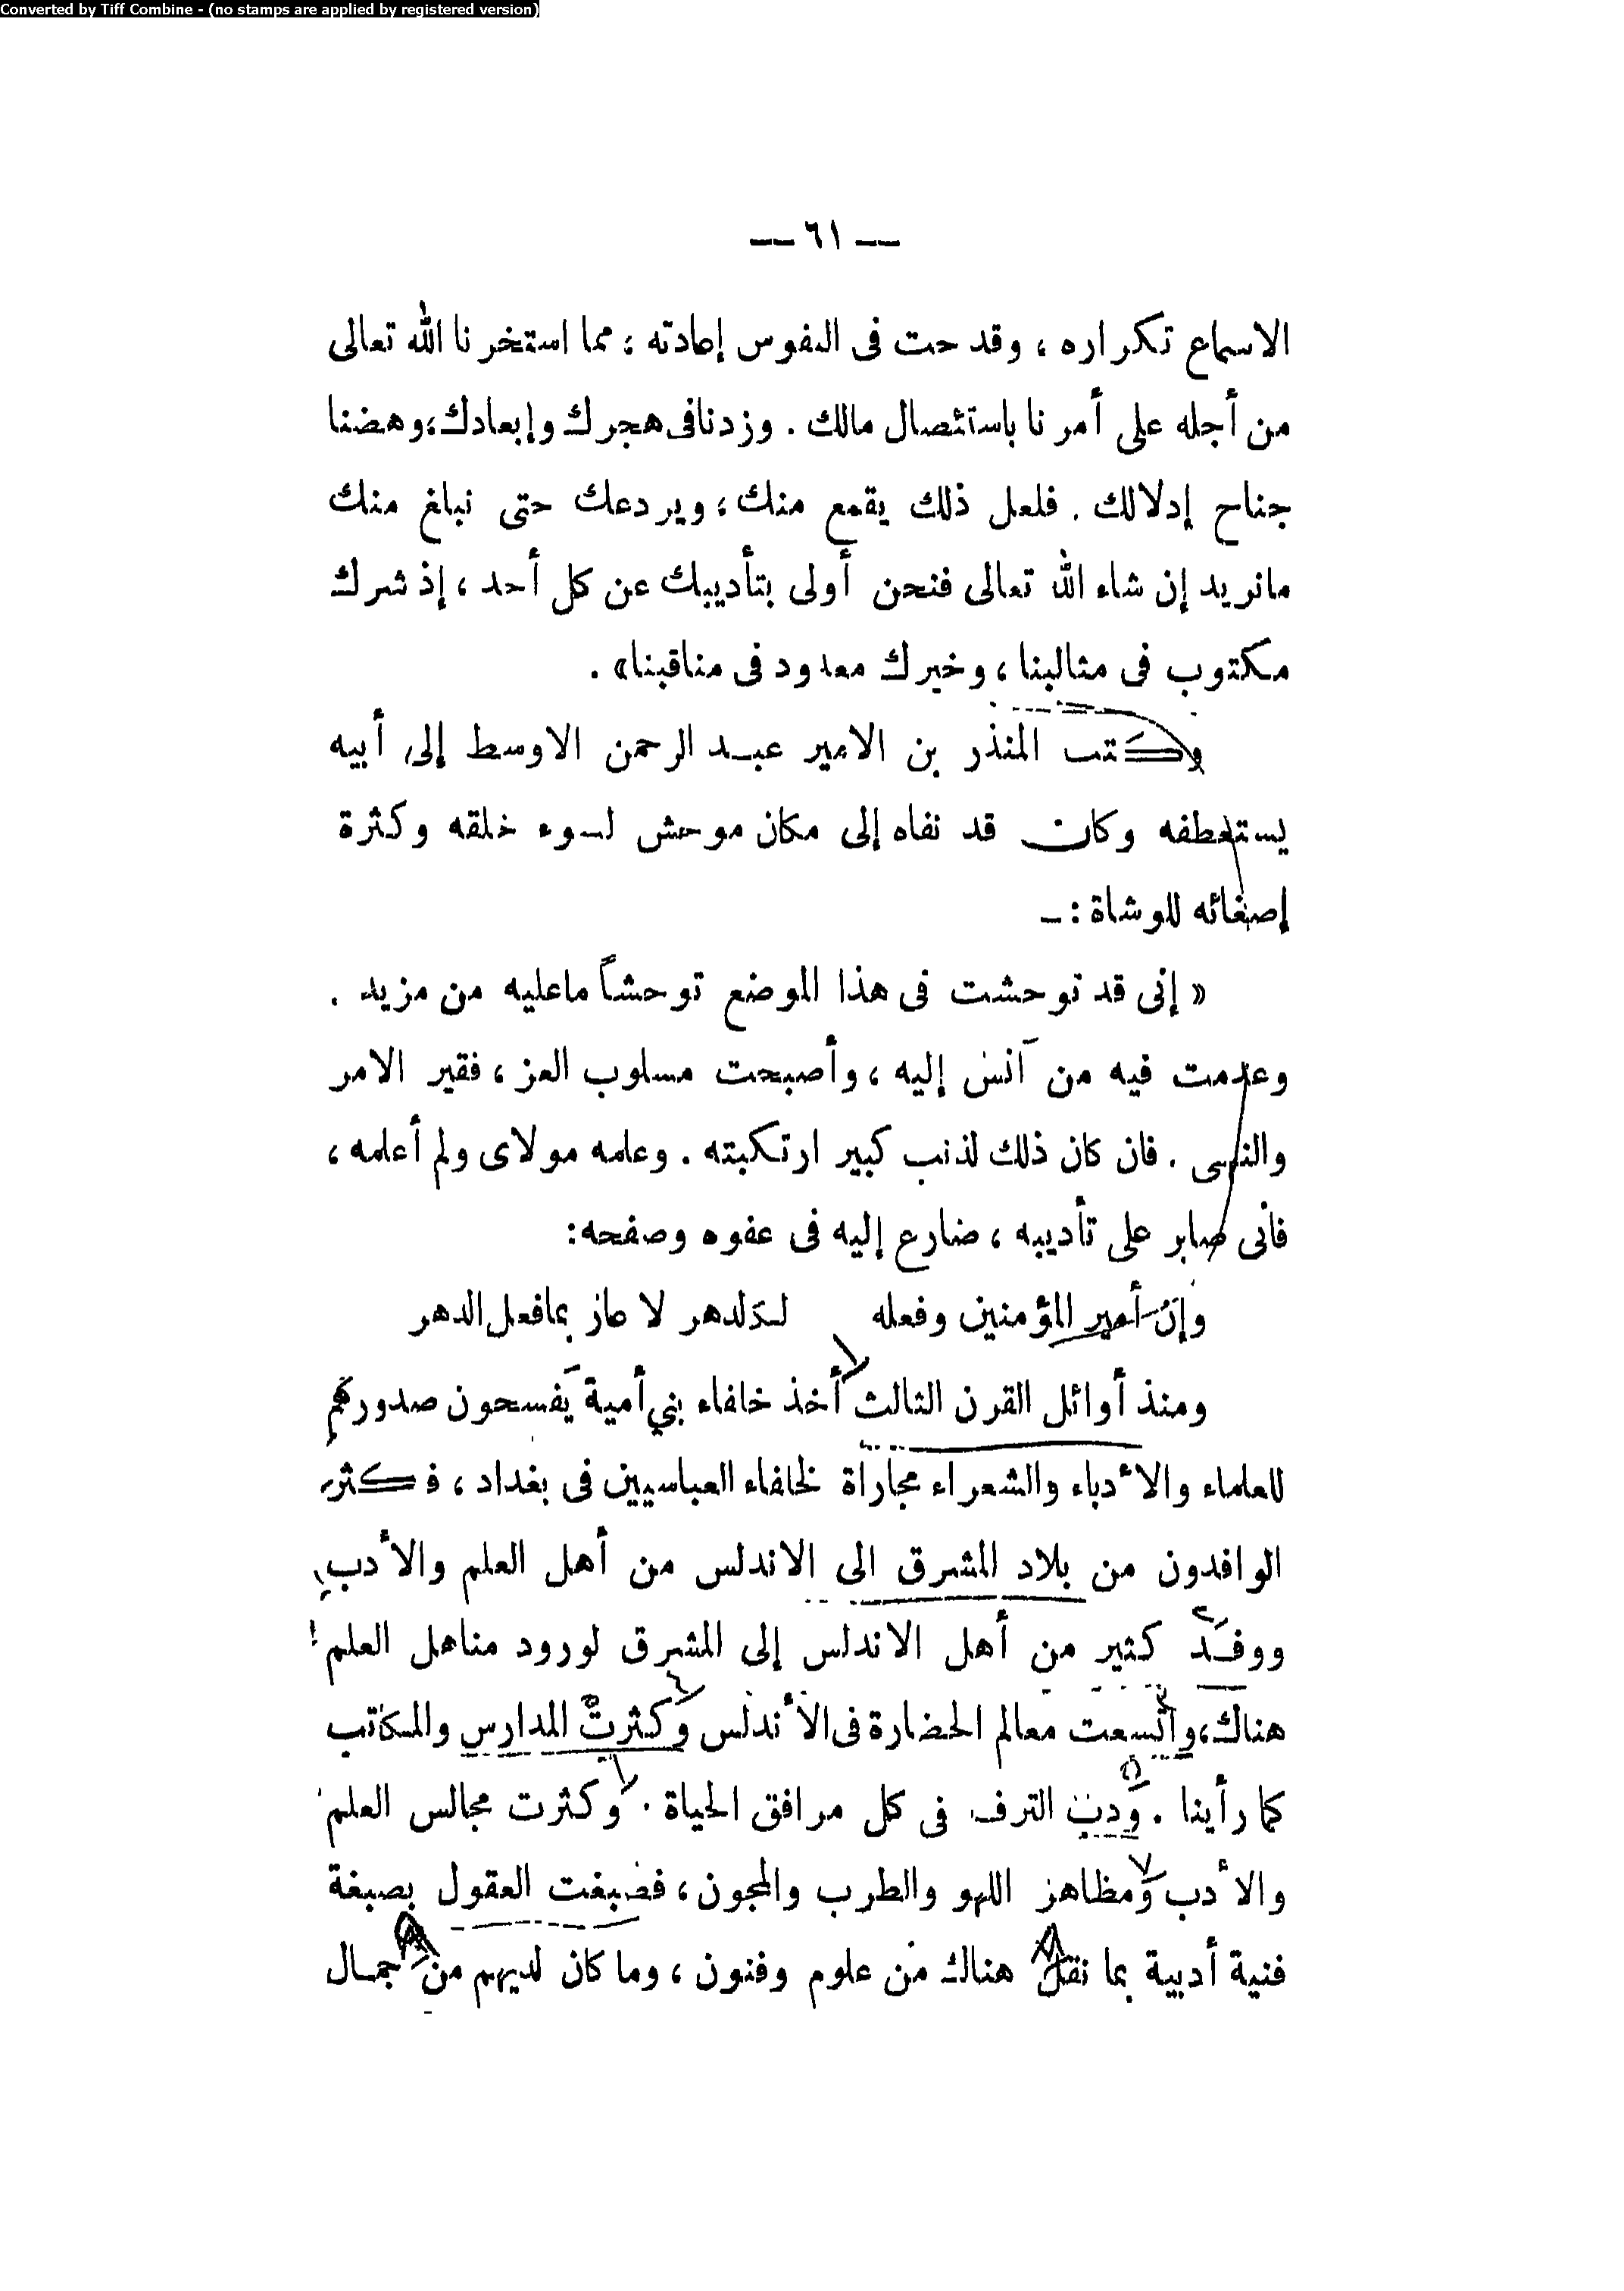 Converted by Tiff Combine - (no stamps are applied by registered version)
— ٦١ —
الاسماع تكراره ، وقدحت فى النفوس إعادته ؛ مما استخرنا الله تعالى
من أجله على أمرنا باستئصال مالك . وزدنا فى هجرك وإبعادك، وهضنا
جناح إدلالك . فلعل ذلك يقمع منك ، ويردعك حتى نبلغ منك
مانريد إن شاء الله تعالى فنحن أولى بتأديبك عن كل أحد ، إذ شرك
مكتوب فى مثالبنا ، وخيرك معدود فى مناقبنا» .
وكتب المنذر بن الامير عبد الرحمن الاوسط إلى أبيه
يستعطفه وكان قد نفاه إلى مكان موحش لسوء خلقه وكثرة
إصغائه للوشاة : —
« إنى قد توحشت فى هذا الموضع توحشاً ماعليه من مزيد .
وعدمت فيه من آنس إليه ، وأصبحت مسلوب العز ، فقير الامر
والنهى . فان كان ذلك لذنب كبير ارتكبته . وعلمه مولاى ولم أعلمه ،
فأنى صابر على تأديبه ، ضارع إليه فى عفوه وصفحه :
وإن أمير المؤمنين وفعله لكالدهر لا عار بما فعل الدهر
ومنذ أوائل القرن الثالث أخذ خلفاء بني أمية يفسحون صدورهم
للعلماء والأدباء والشعراء مجاراة لخلفاء العباسيين فى بغداد ، فكثر
الوافدون من بلاد المشرق الى الاندلس من أهل العلم والأدب
ووفد كثير من أهل الاندلس إلى المشرق لورود مناهل العلم
هناك، واتسعت معالم الحضارة فى الأندلس وكثرت المدارس والمكاتب
كما رأينا . ودب الترف فى كل مرافق الحياة . وكثرت مجالس العلم
والأدب ومظاهر اللهو والطرب والمجون ، فصبغت العقول بصبغة
فنية أدبية بما نقل هناك من علوم وفنون ، وما كان لديهم من جمال